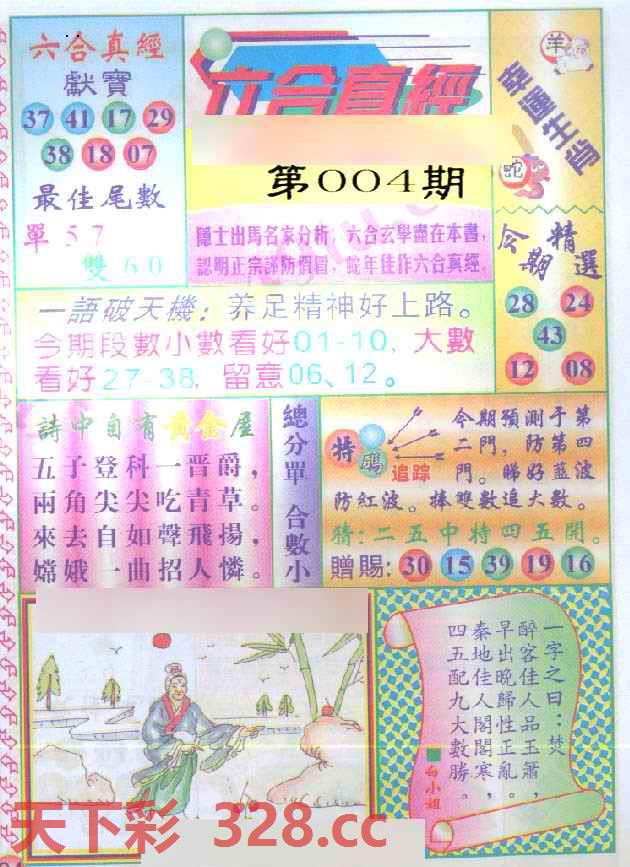 六合真經
獻寶
37 41 17 29
38 18 07
最佳尾數
單 5 7
雙 6 0
六合真經
第004期
隱士出馬名家分析，六合玄學盡在本書，
認明正宗謹防假冒，蛇年佳作六合真經。
羊
幸運生肖
蛇
今期精選
28 24
43
12 08
一語破天機：养足精神好上路。
今期段數小數看好01-10，大數
看好27-38，留意06、12。
詩中自有黃金屋
五子登科一晋爵，
兩角尖尖吃青草。
來去自如聲飛揚，
嫦娥一曲招人憐。
總分單 合數小
特碼
追踪
今期預測于第
二門，防第四
門。睇好藍波
防紅波。捧雙數追大數。
猜：二五中特四五開。
贈賜：30 15 39 19 16
一字之曰：焚
醉客佳人品玉簫，
早出晚歸性正亂。
秦地佳人閣閣寒，
四五配九大數勝。
白小姐
天下彩 328.cc